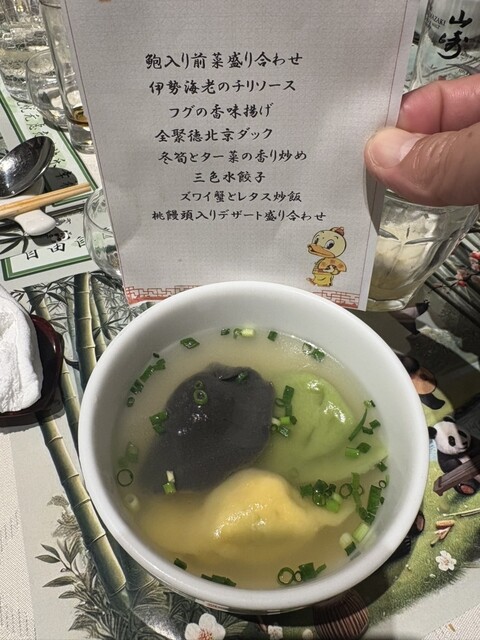 鮑入り前菜盛り合わせ
伊勢海老のチリソース
フグの香味揚げ
全聚徳北京ダック
冬筍とター菜の香り炒め
三色水餃子
ズワイ蟹とレタス炒飯
桃饅頭入りデザート盛り合わせ
山崎